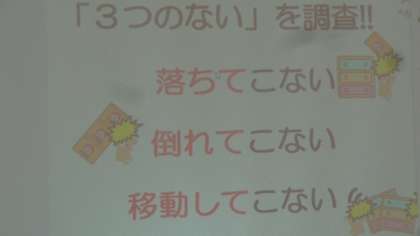 「３つのない」を調査!!
落ちてこない
倒れてこない
移動してこない